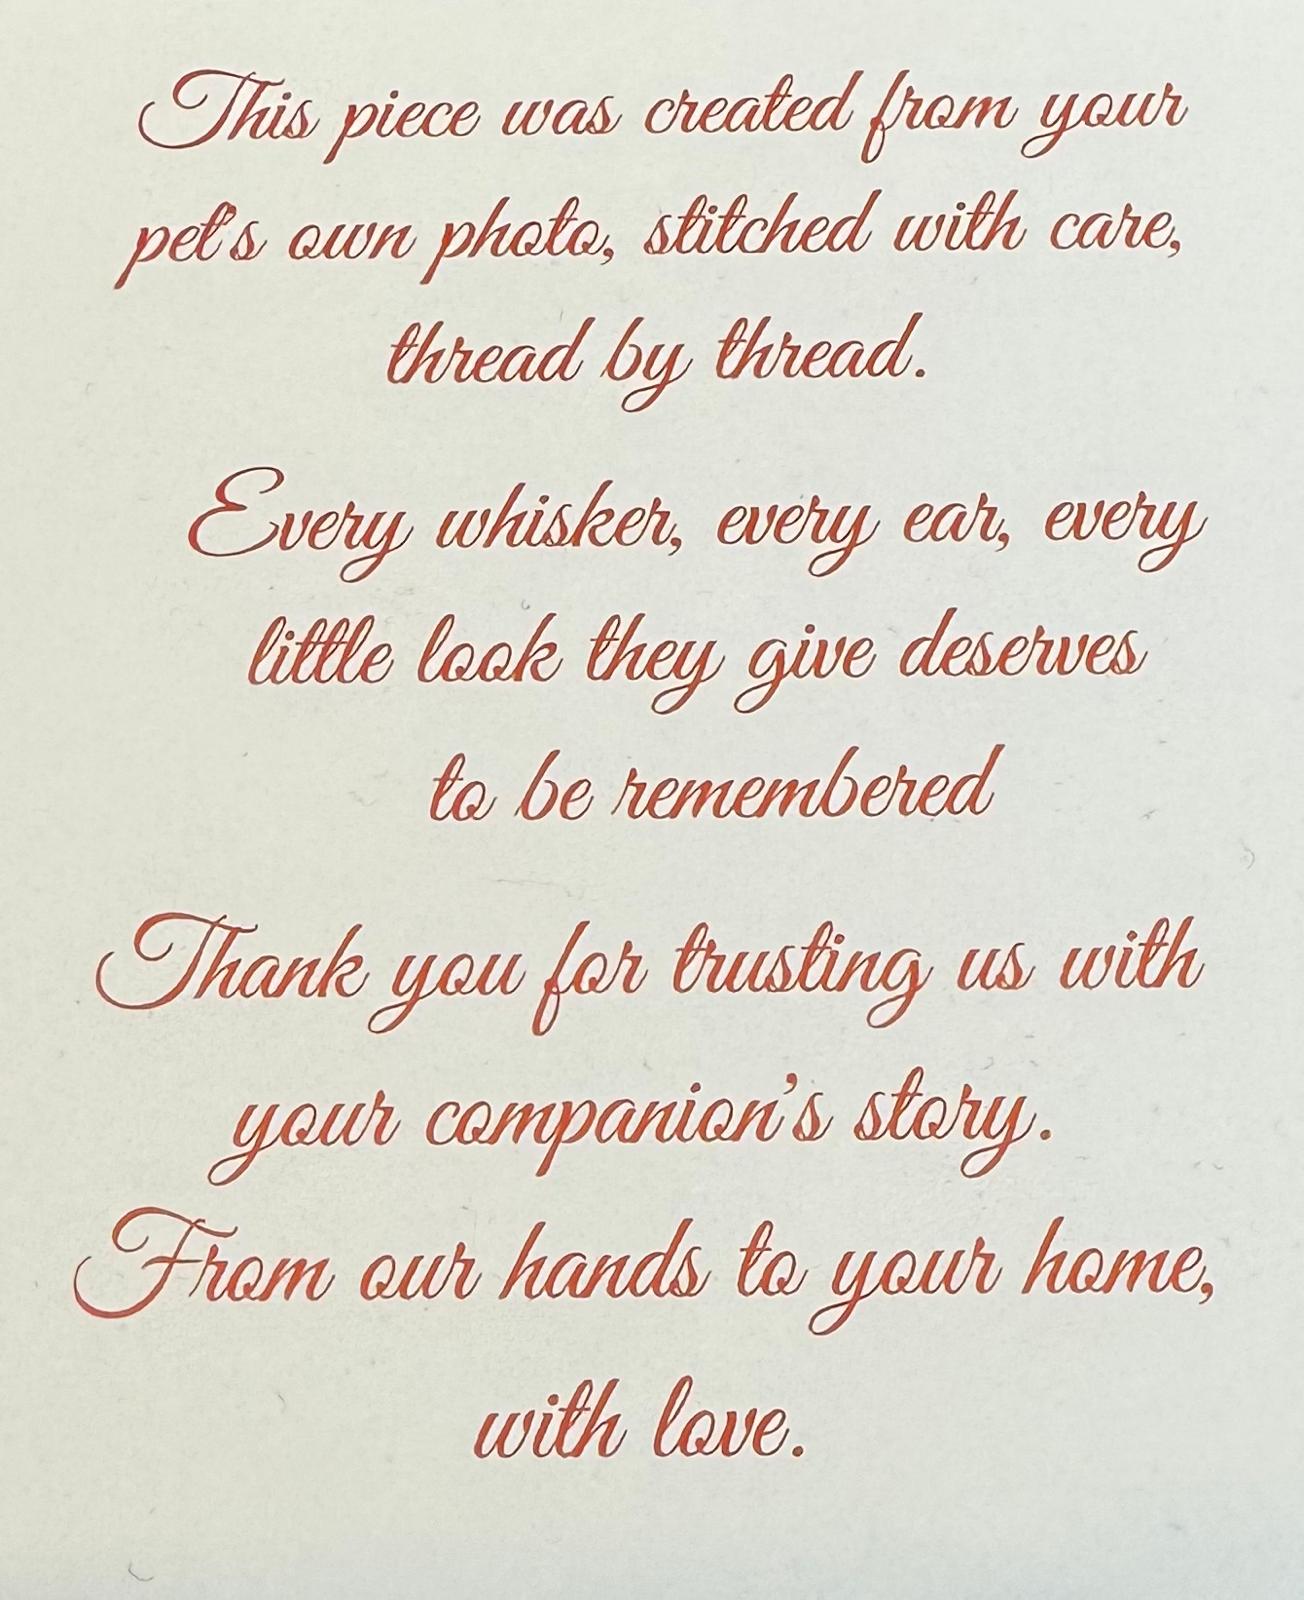 This piece was created from your
pet's own photo, stitched with care,
thread by thread.
Every whisker, every ear, every
little look they give deserves
to be remembered
Thank you for trusting us with
your companion's story.
From our hands to your home,
with love.